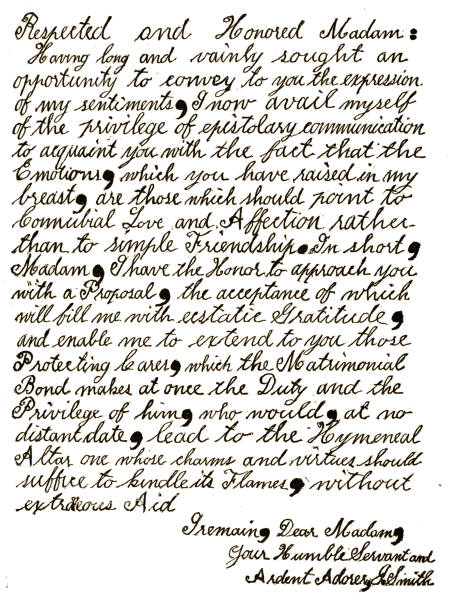 Respected and Honored Madam:
Having long and vainly sought an
opportunity to convey to you the expression
of my sentiments, I now avail myself
of the privilege of epistolary communication
to acquaint you with the fact that the
Emotions, which you have raised in my
breast, are those which should point to
Connubial Love and Affection rather
than to simple Friendship. In short,
Madam, I have the Honor to approach you
with a Proposal, the acceptance of which
will fill me with ecstatic Gratitude,
and enable me to extend to you those
Protecting Cares, which the Matrimonial
Bond makes at once the Duty and the
Privilege of him, who would, at no
distant date, lead to the Hymeneal
Altar one whose charms and virtues should
suffice to kindle its Flames, without
extraeous Aid
I remain, Dear Madam,
Your Humble Servant and
Ardent Adorer, J. Smith